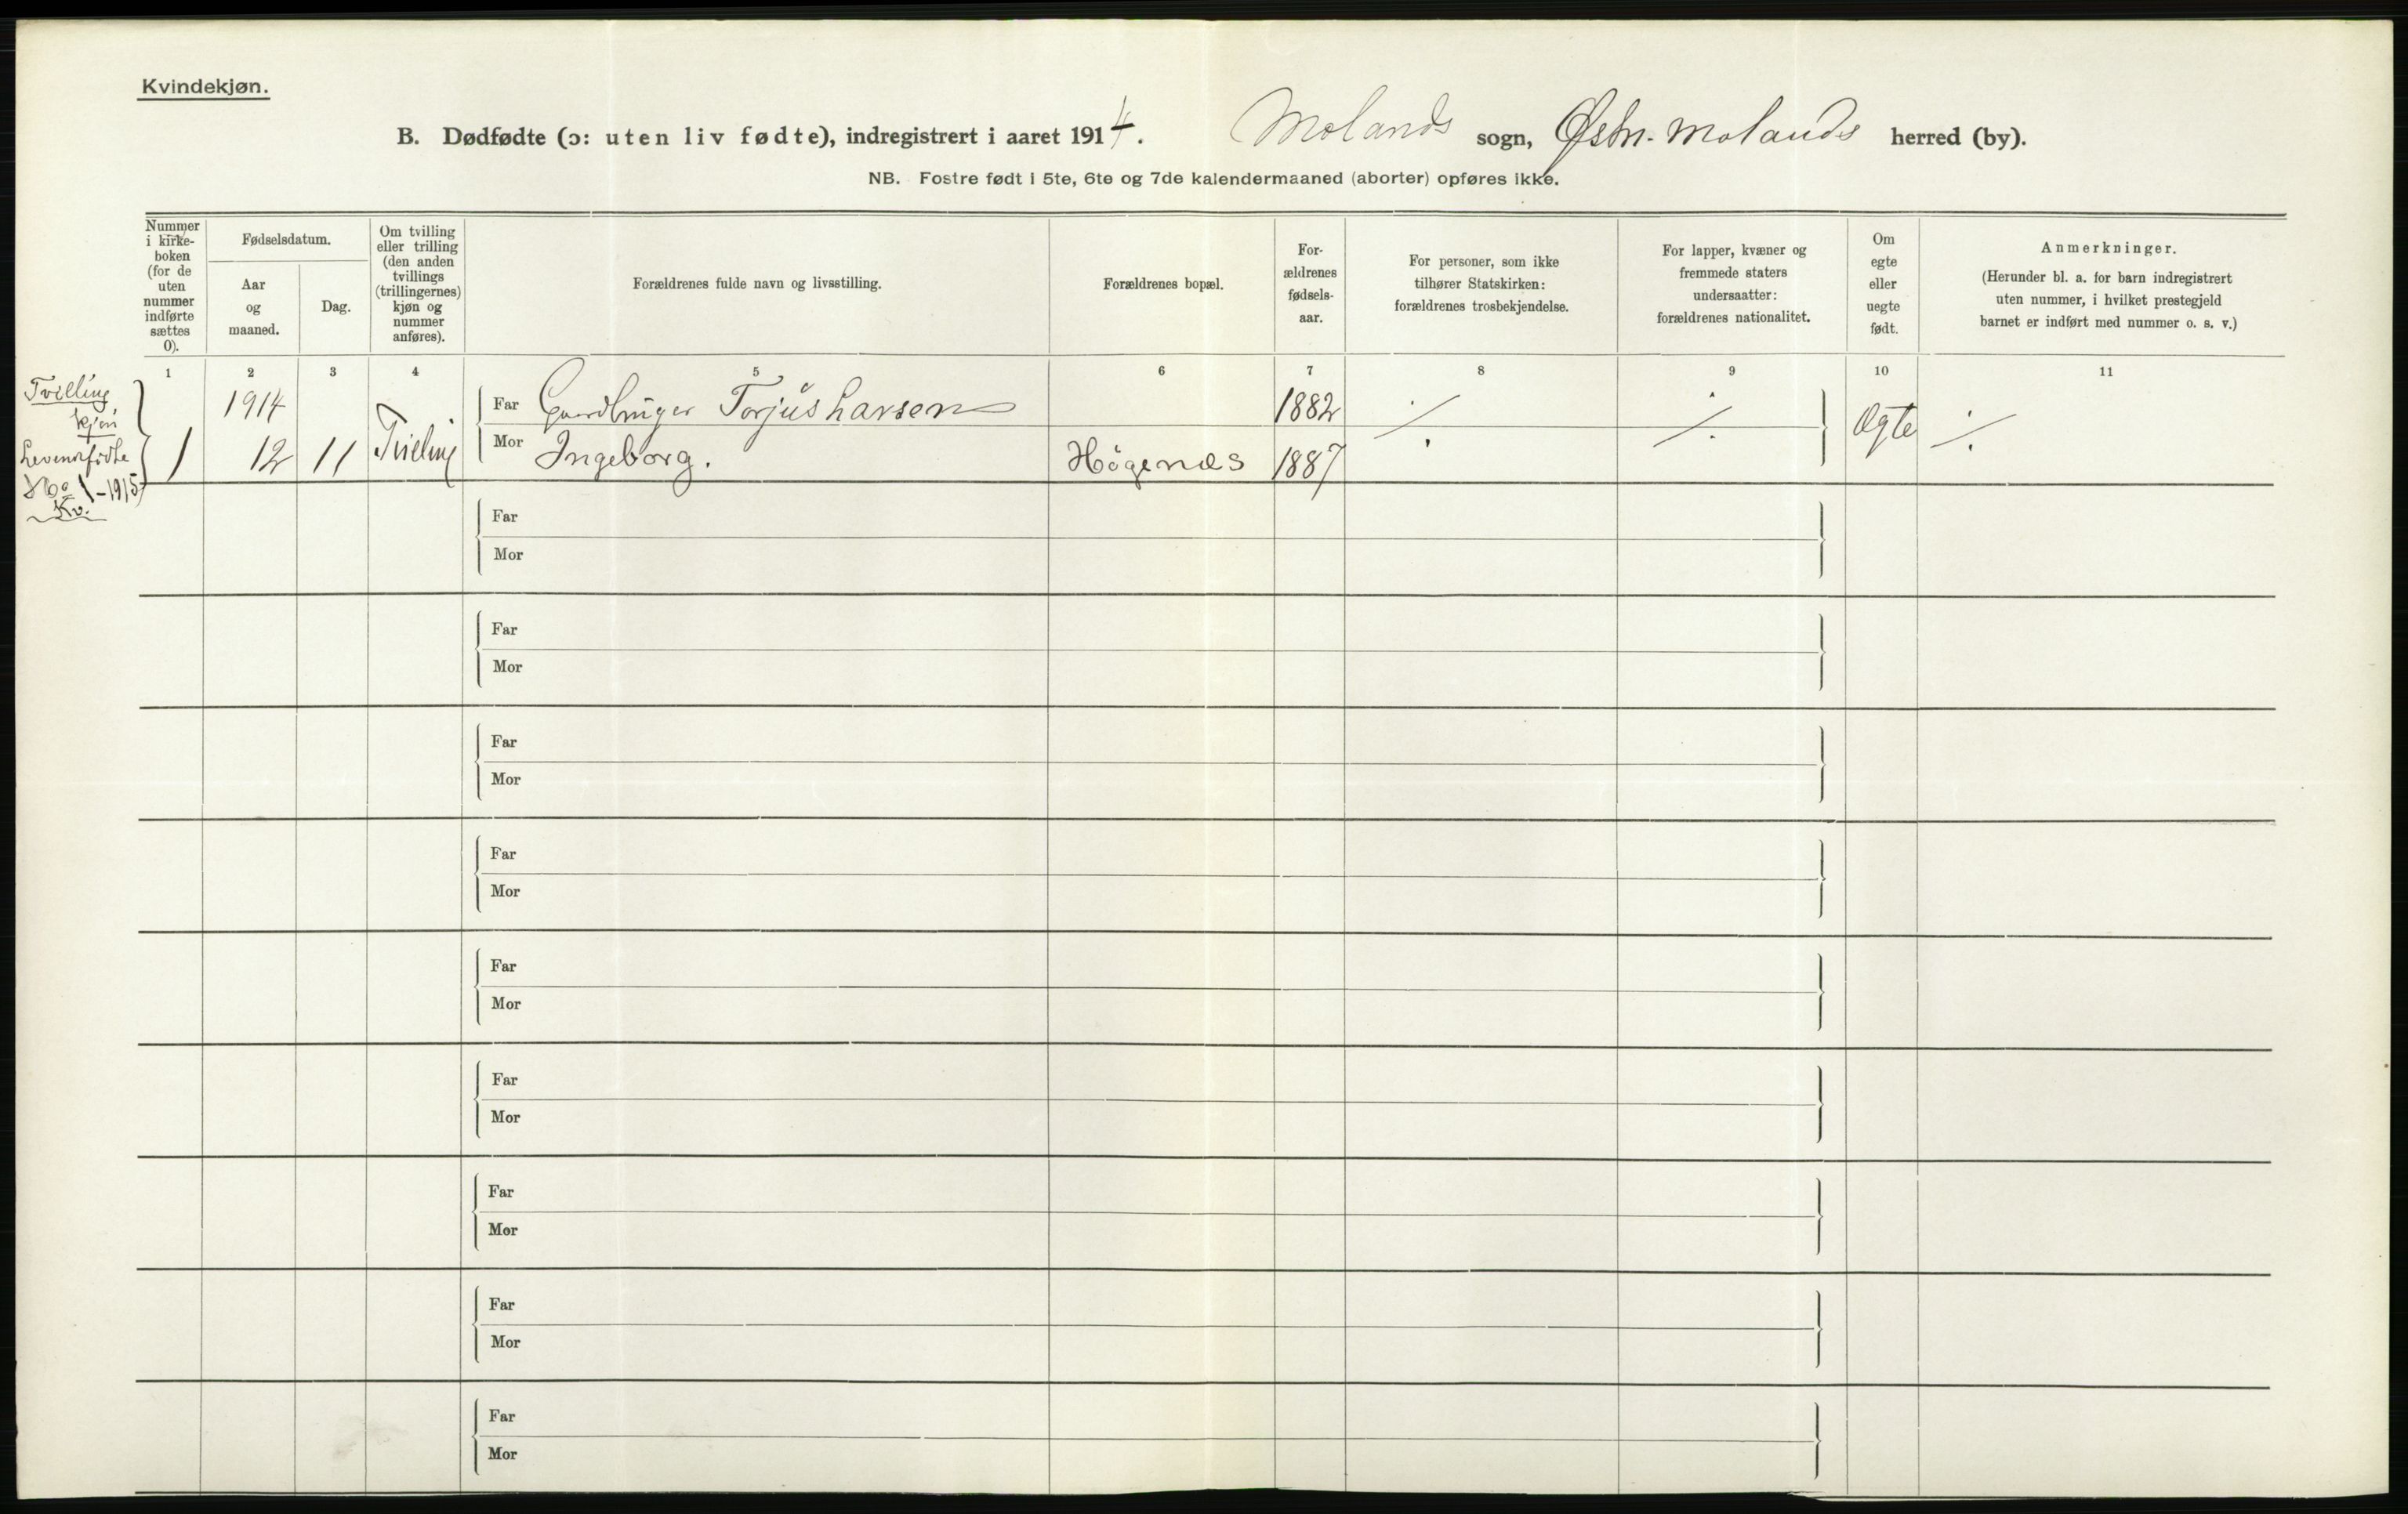 Kvindekjøn.
B. Dødfødte (ɔ: uten liv fødte), indregistrert i aaret 1914. Molands sogn, Østre-Molands herred (by).
NB. Fostre født i 5te, 6te og 7de kalendermaaned (aborter) opføres ikke.
Nummer
i kirke-
boken
(for de
uten
nummer
indførte
sættes
0).
Fødselsdatum.
Aar
og
maaned.
Dag.
Om tvilling
eller trilling
(den anden
tvillings
(trillingernes)
kjøn og
nummer
anføres).
Forældrenes fulde navn og livsstilling.
Forældrenes bopæl.
For-
ældrenes
fødsels-
aar.
For personer, som ikke
tilhører Statskirken:
forældrenes trosbekjendelse.
For lapper, kvæner og
fremmede staters
undersaatter:
forældrenes nationalitet.
Om
egte
eller
uegte
født.
Anmerkninger.
(Herunder bl. a. for barn indregistrert
uten nummer, i hvilket prestegjeld
barnet er indført med nummer o. s. v.)
1 2 3 4 5 6 7 8 9 10 11
Tvilling
kjøn
Levendefødte
No 1-1915
Kv.
1914
1 12 11 Tvilling
Far Gaardbruger Torjus Larsen 1882 ./. ./. Egte ./.
Mor Ingeborg. Högenæs 1887
Far
Mor
Far
Mor
Far
Mor
Far
Mor
Far
Mor
Far
Mor
Far
Mor
Far
Mor
Far
Mor